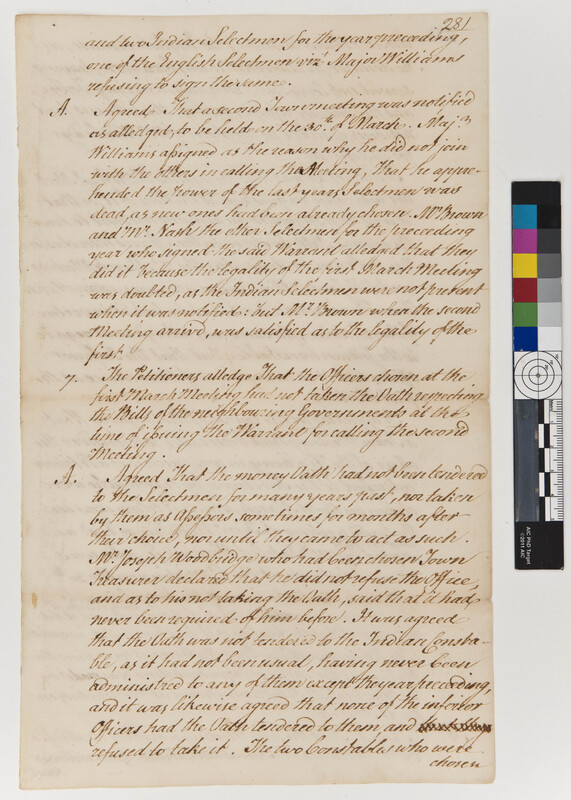 281
and two Indian Selectmen for the year preceeding,
one of the English Selectmen viz.t Major Williams
refusing to sign the same.
A. Agreed That a second Town meeting was notified
as alledged, to be held on the 30th. of March. Maj.r
Williams assigned as the reason why he did not join
with the others in calling the Meeting, That he appre-
hended the power of the last years Selectmen was
dead, as new ones had been already chosen. Mr. Brown
and Mr. Nash the other Selectmen for the preceeding
year who signed the said Warrant alledged that they
did it because the legality of the first March Meeting
was doubted, as the Indian Selectmen were not present
when it was notified: but Mr. Brown when the second
Meeting arrived, was satisfied as to the legality of the
first
7. The Petitioners alledge That the Officers chosen at the
first March Meeting had not taken the Oath respecting
the Bills of the neighbouring Governments at the
time of issuing the Warrant for calling the second
Meeting.
A. Agreed That the money Oath had not been tendered
to the Selectmen for many years past, nor taken
by them as Assessors sometimes for months after
their choice, nor until they came to act as such.
Mr. Joseph Woodbridge who had been chosen Town
Treasurer declared that he did not refuse the Office,
and as to his not taking the Oath, said that it had
never been required of him before. It was agreed
that the Oath was not tendered to the Indian Consta-
ble, as it had not been usual, having never been
administred to any of them except the year preceeding,
and it was likewise agreed that none of the inferior
Officers had the Oath tendered to them, and
refused to take it. The two Constables who were
chosen
AIC PhD Target
©2011 AIC